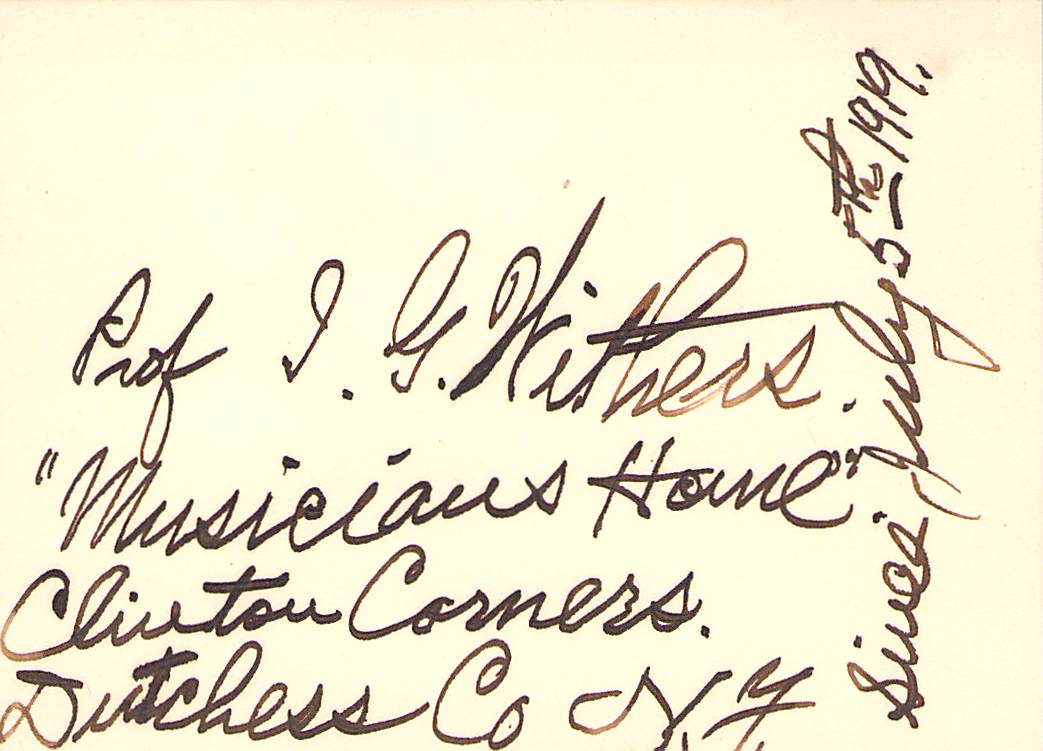 Prof I. G. Withers.
"Musicians Home".
Clinton Corners.
Dutchess Co N.Y.
Since July 5th 1919.